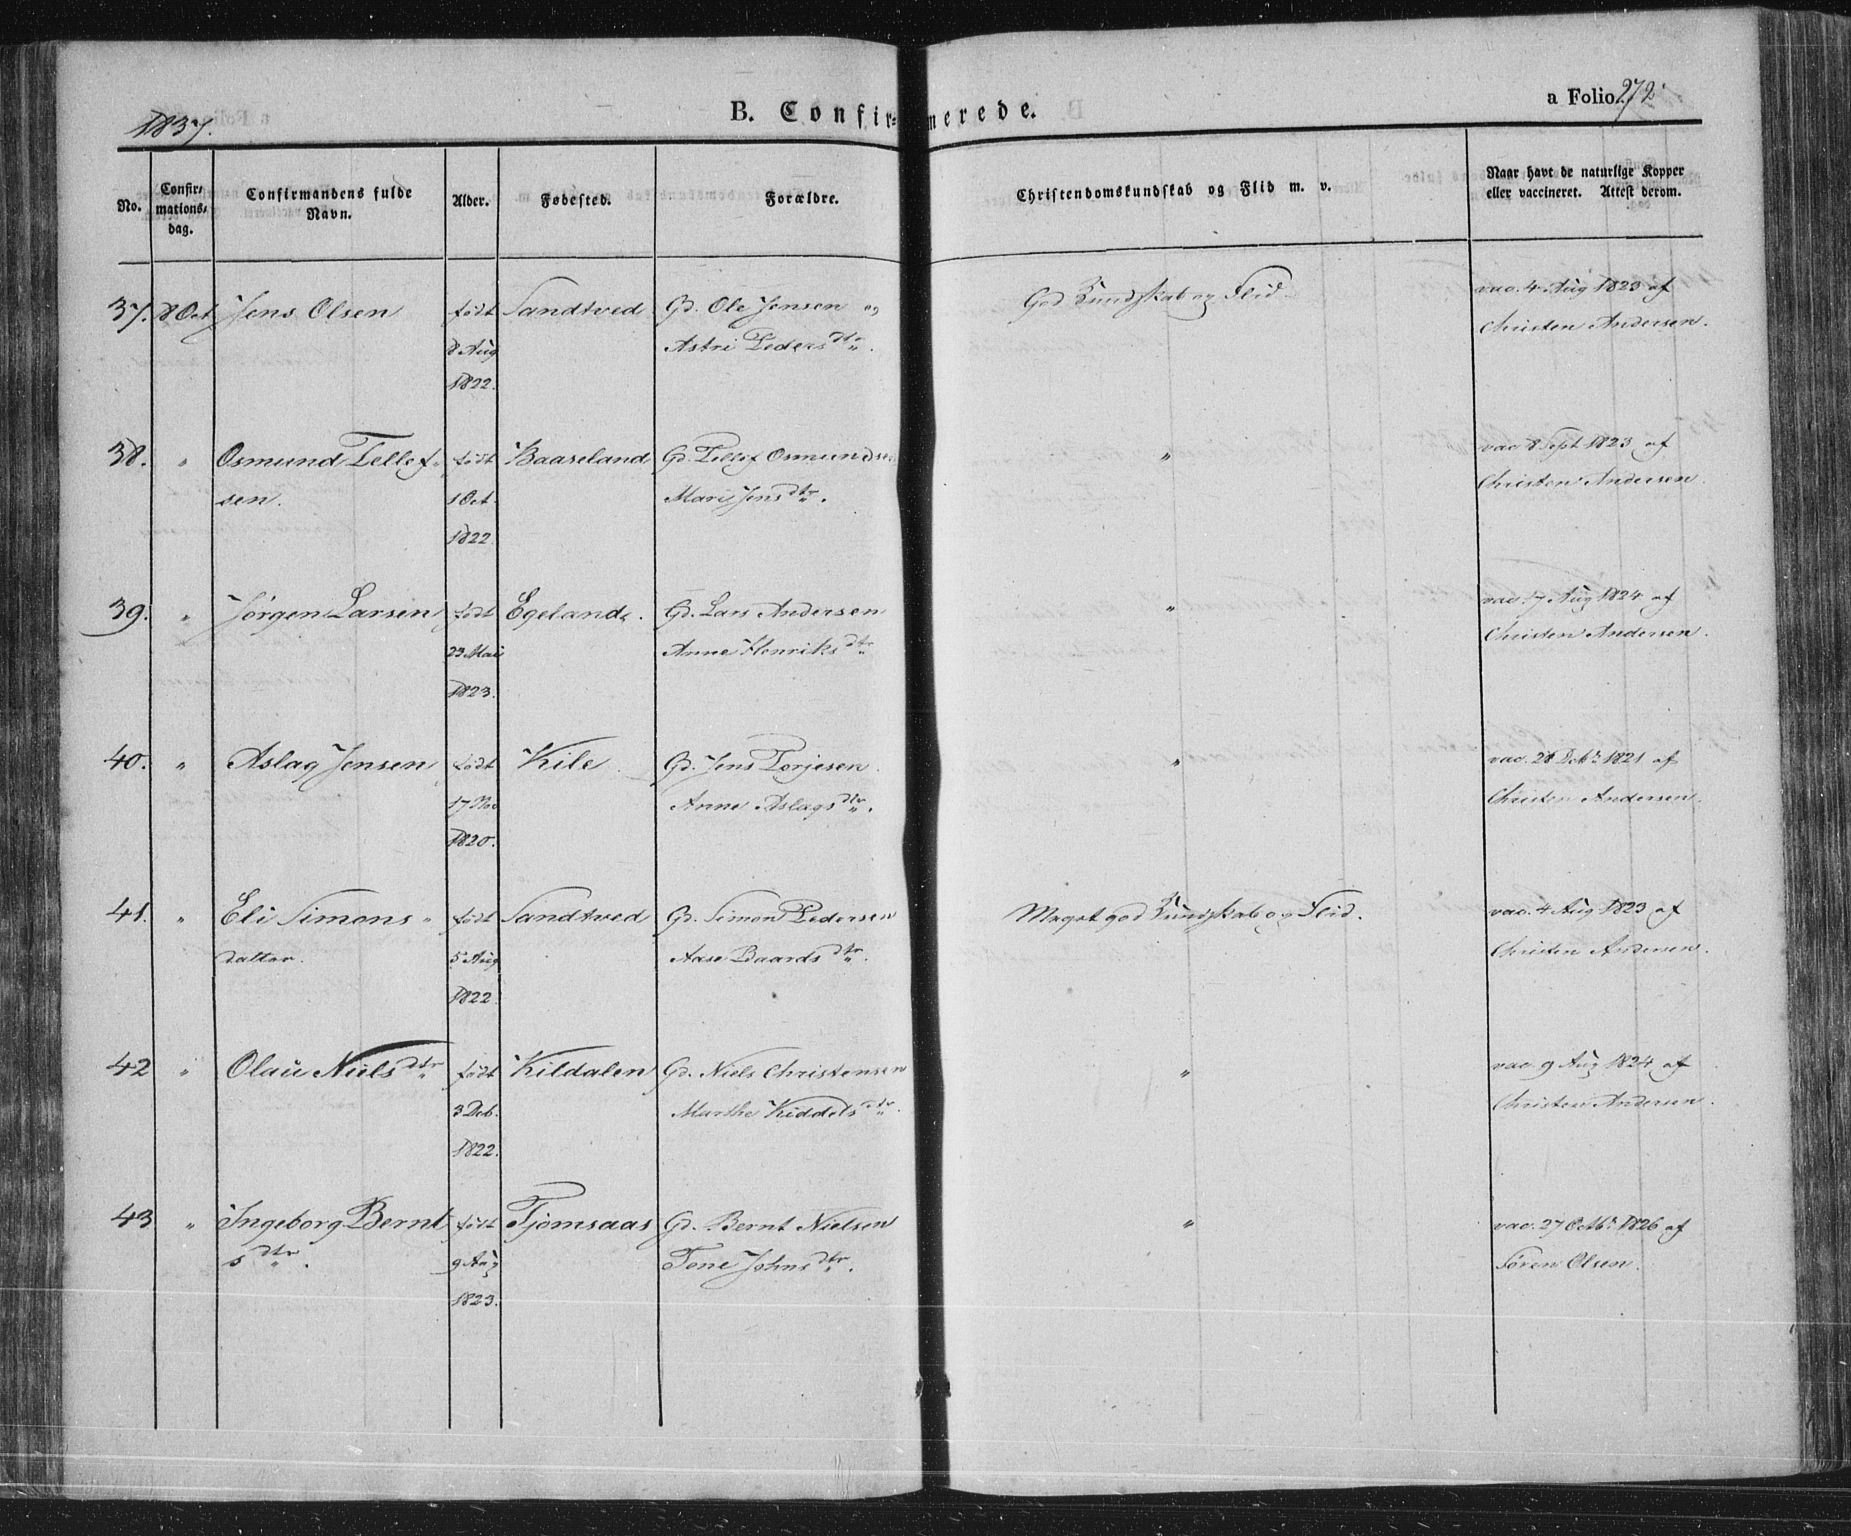 1837.
B. Confirmerede.
a Folio 272
No.
Confirmationsdag.
Confirmandens fulde Navn.
Alder.
Fødested.
Forældre.
Christendomskundskab og Flid m. v.
Naar havt de naturlige Kopper eller vaccineret. Attest derom.
37. 8 Oct Jens Olsen født Sandtved Gd. Ole Jensen og God Kundskab og Flid vac. 4 Aug 1823 af
8 Aug Astri Peders dtr. Christen Andersen.
1822.
38. " Osmund Tellef- født Baaseland Gd. Tellef Osmundsen " vac 8 Sept 1823 af
sen. 1 Oct. Mari Jens dtr. Christen Andersen.
1822
39. " Jørgen Larsen født Egeland. Gd. Lars Andersen " vac. 7 Aug 1824 af
23 Mai Anne Henriks dtr Christen Andersen.
1823.
40. " Aslag Jensen født Kile Gd. Jens Torjesen " vac. 28 Dcbr 1821 af
17 Nov Anne Aslags dtr. Christen Andersen.
1820.
41. " Eli Simons- født Sandtved Gd. Simon Pedersen Meget god Kundskab og Flid. vac. 4 Aug 1823 af
datter. 5 Aug Aase Baards dtr. Christen Andersen.
1822.
42 " Olau Niels dtr født Kildalen Gd. Niels Christensen " vac 9 Aug 1824 af
3 Deb. Marthe Kiddels dtr. Christen Andersen.
1822.
43 " Ingeborg Bernt født Tjomsaas Gd. Bernt Nielsen " vac. 27 Octbr 1826 af
s dtr. 9 Aug Tone Johns dtr. Søren Olsen.
1823.